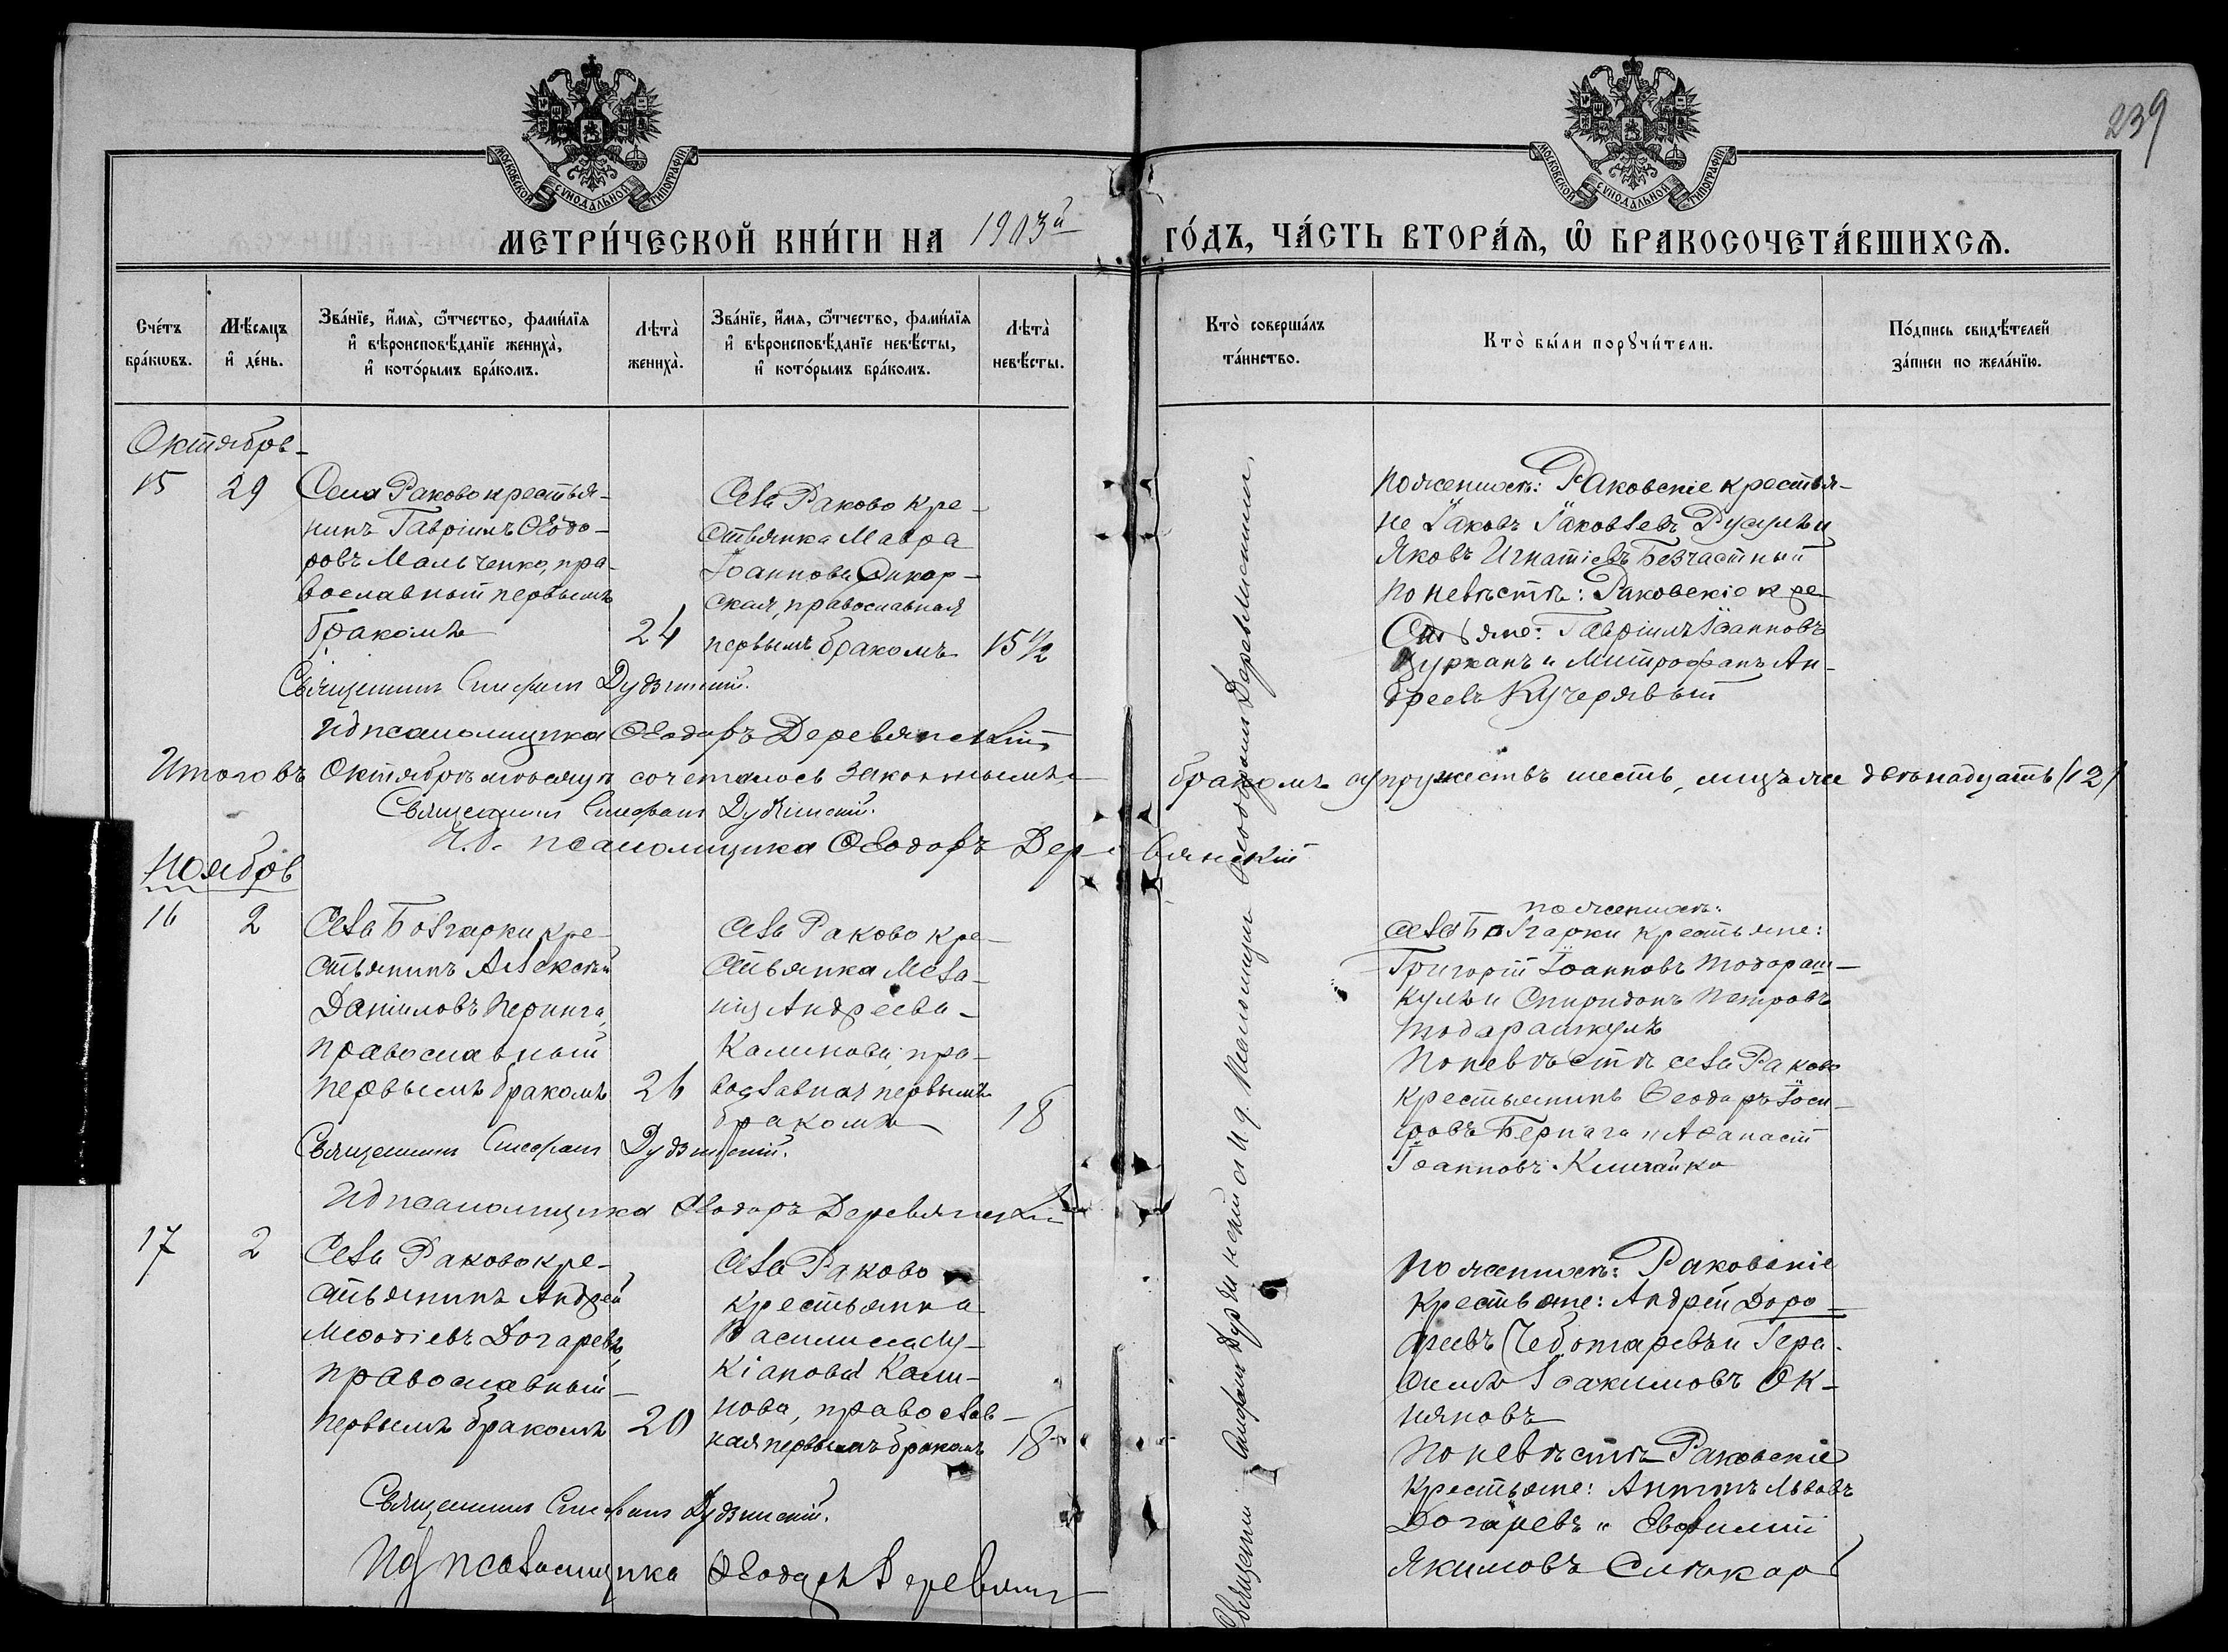 239
МОСКОВСКОЙ СѴНОДАЛЬНОЙ ТИПОГРАФІИ
МОСКОВСКОЙ СѴНОДАЛЬНОЙ ТИПОГРАФІИ
МЕТРИ́ЧЕСКОЙ КНИ́ГИ НА 1903й ГО́ДЪ, ЧА́СТЬ ВТОРА́Ѧ, Ѡ҆ БРАКОСОЧЕТА́ВШИХСѦ.
Счéтъ
бра́кѡвъ.
Мѣ́сяцъ
и҆ де́нь.
Зва́нїе, и҆́мѧ, ѻ҆́тчество, фами́лїѧ
и҆ вѣроисповѣ́данїе жениха̀,
и҆ кото́рымъ бра́комъ.
Лѣта̀
жениха̀.
Зва́нїе, и҆́мѧ, ѻ҆́тчество, фами́лїѧ
и҆ вѣроисповѣ́данїе невѣ́сты,
и҆ кото́рымъ бра́комъ.
Лѣта̀
невѣ́сты.
Кто̀ соверша́лъ
та́инство.
Кто̀ бы́ли порꙋчи́тели.
По́дпись свидѣ́телей
за́писи по жела́нїю.
Октябрь
15
29
Села Раково крестья-
нинъ Гавріилъ Ѳеодо-
ровъ Мальченко, пра-
вославный первымъ
бракомъ
24
Села Раково кре-
стьянка Мавра
Іоаннова
ская, православная
первымъ бракомъ
15 1/2
по женихѣ: Раковскіе крестья-
не Іаковъ Іаковлевъ и
Яковъ Игнатіевъ Безчастный
по невѣстѣ: Раковскіе кре-
стьяне: Гавріилъ Іоанновъ
Цурканъ и Митрофанъ Ан-
дреевъ Кучерявый
Священникъ Стефанъ Дудзинскій.
И д псаломщика Ѳеодоръ Деревянскій
Итого въ Октябрѣ мѣсяцѣ сочеталось законнымъ бракомъ супружествъ шесть, лицъ же двѣнадцать (12)
Священникъ Стефанъ Дудзинскій.
И.д. псаломщика Ѳеодоръ Деревянскій
Ноябрь
16
2
Села Болгарки кре-
стьянинъ Алексѣй
Даніиловъ Перинга,
православный
первымъ бракомъ
26
Села Раково кре-
стьянка Мела-
нія Андреева
Калинова, пра-
вославная первымъ
бракомъ
18
по женихѣ:
села Болгарки крестьяне:
Григорій Іоанновъ Тодораш-
кулъ и Спиридонъ Петровъ
Тодорашкулъ
По невѣстѣ села Раково
крестьянинъ Ѳеодоръ
Бернага и Аѳанасій
Іоанновъ
Священникъ Стефанъ Дудзинскій.
И д псаломщика Ѳеодоръ Деревянскій
17
2
Села Раково кре-
стьянинъ Андрей
Меѳодіевъ Догаревъ,
православный
первымъ бракомъ
20
Села Раково
крестьянка
Василиса Лу-
кіанова Кали-
нова, православ-
ная первымъ бракомъ
18
По женихѣ: Раковскіе
Крестьяне: Андрей Доро-
феевъ Чеботаревъ и Гера-
симъ Іоакимовъ Ок-
няновъ
По невѣстѣ Раковскіе
Крестьяне: Антонъ Львовъ
Догаревъ и Евфимій
Якимовъ
Священникъ Стефанъ Дудзинскій.
И д псаломщика Ѳеодоръ Деревянск
Священникъ Стефанъ Дудзинскій и И д. псаломщика Ѳеодоръ Деревянскій.